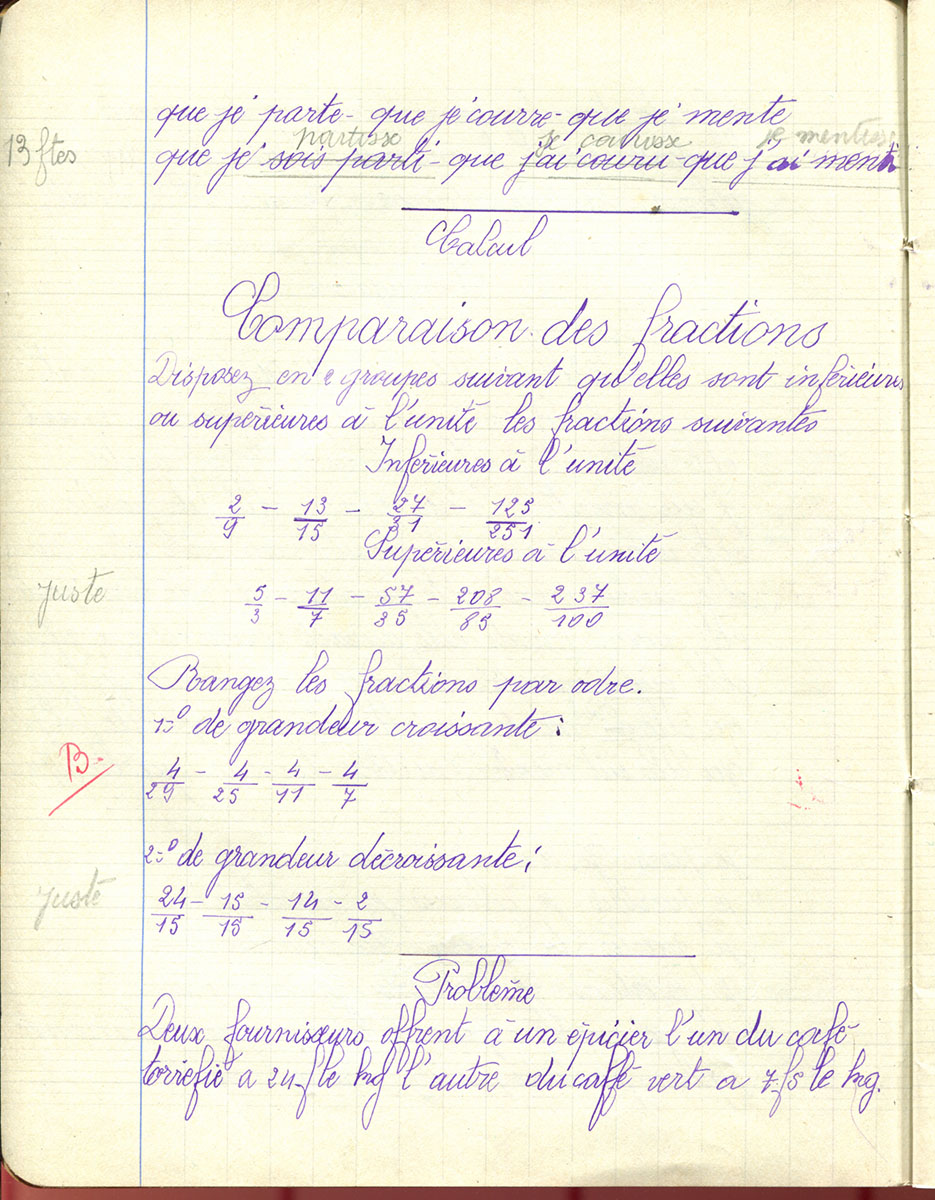 que je parte - que je courre - que je mente
partisse je courusse je mentisse
13 ftes
que je sois parti - que j'ai couru - que j'ai menti
Calcul
Comparaison des fractions
Disposez en 2 groupes suivant qu'elles sont inférieures
ou supérieures à l'unité les fractions suivantes
Inférieures à l'unité
2/9 - 13/15 - 27/31 - 125/251
Supérieures à l'unité
juste
5/3 - 11/7 - 57/35 - 208/85 - 237/100
Rangez les fractions par odre.
1º de grandeur croissante :
B.
4/29 - 4/25 - 4/11 - 4/7
2º de grandeur décroissante :
juste
24/15 - 15/15 - 14/15 - 2/15
Problème
Deux fournisseurs offrent à un épicier l'un du café
torréfié a 24f le kg l'autre du caffé vert a 7f5 le kg.